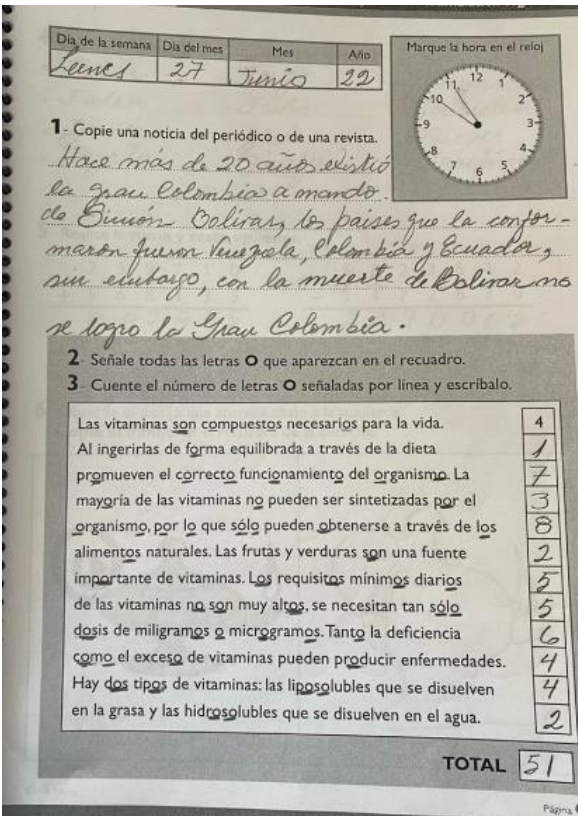 Día de la semana Día del mes Mes Año
Leenes 27 Junio 22
Marque la hora en el reloj
12
11 1
10 2
9 3
8 4
7 5
6
1- Copie una noticia del periódico o de una revista.
Hace más de 20 años existió
la gran Colombia a mando
de Simón Bolivar, los paises que la confor-
maron fueron Venezuela, Colombia y Ecuador,
sin embargo, con la muerte de Bolivar no
se logro la Gran Colombia.
2- Señale todas las letras O que aparezcan en el recuadro.
3- Cuente el número de letras O señaladas por línea y escríbalo.
Las vitaminas son compuestos necesarios para la vida. 4
Al ingerirlas de forma equilibrada a través de la dieta 1
promueven el correcto funcionamiento del organismo. La 7
mayoría de las vitaminas no pueden ser sintetizadas por el 3
organismo, por lo que sólo pueden obtenerse a través de los 8
alimentos naturales. Las frutas y verduras son una fuente 2
importante de vitaminas. Los requisitos mínimos diarios 5
de las vitaminas no son muy altos, se necesitan tan sólo 5
dosis de miligramos o microgramos. Tanto la deficiencia 6
como el exceso de vitaminas pueden producir enfermedades. 4
Hay dos tipos de vitaminas: las liposolubles que se disuelven 4
en la grasa y las hidrosolubles que se disuelven en el agua. 2
TOTAL 51
Página